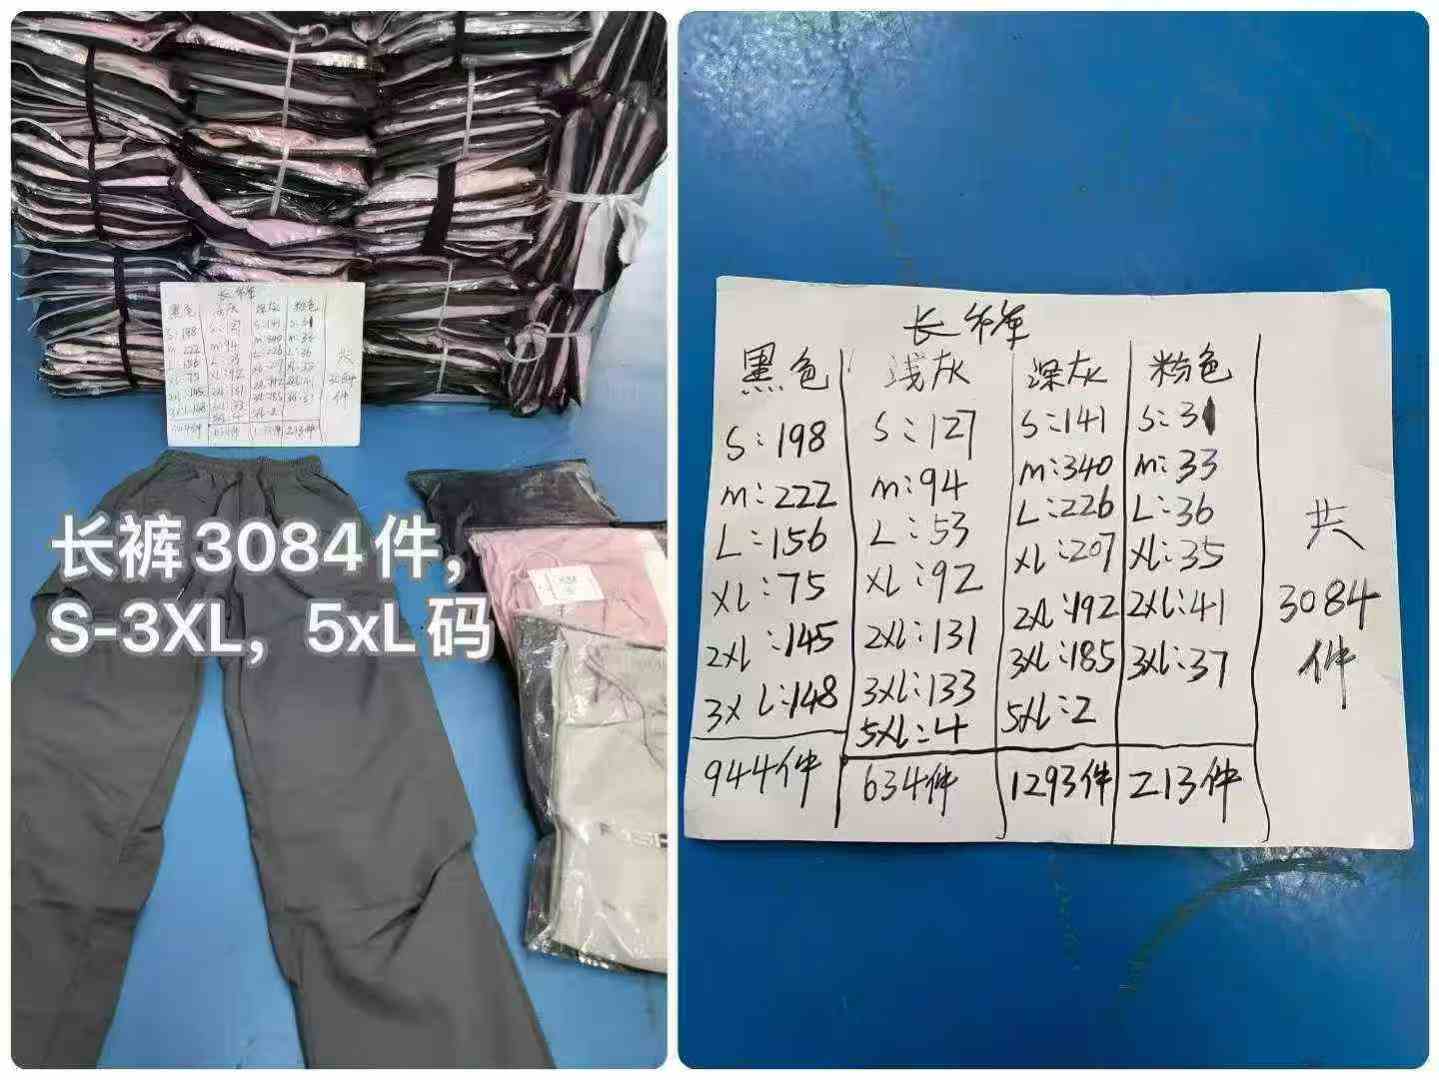 长裤3084件，
S-3XL，5xL码
长裤
黑色
S:198
M:222
L:156
XL:75
2XL:145
3XL:148
944件
浅灰
S:127
M:94
L:53
XL:92
2XL:131
3XL:133
5XL:4
634件
深灰
S:141
M:340
L:226
XL:207
2XL:192
3XL:185
5XL:2
1293件
粉色
S:31
M:33
L:36
XL:35
2XL:41
3XL:37
213件
共
3084
件